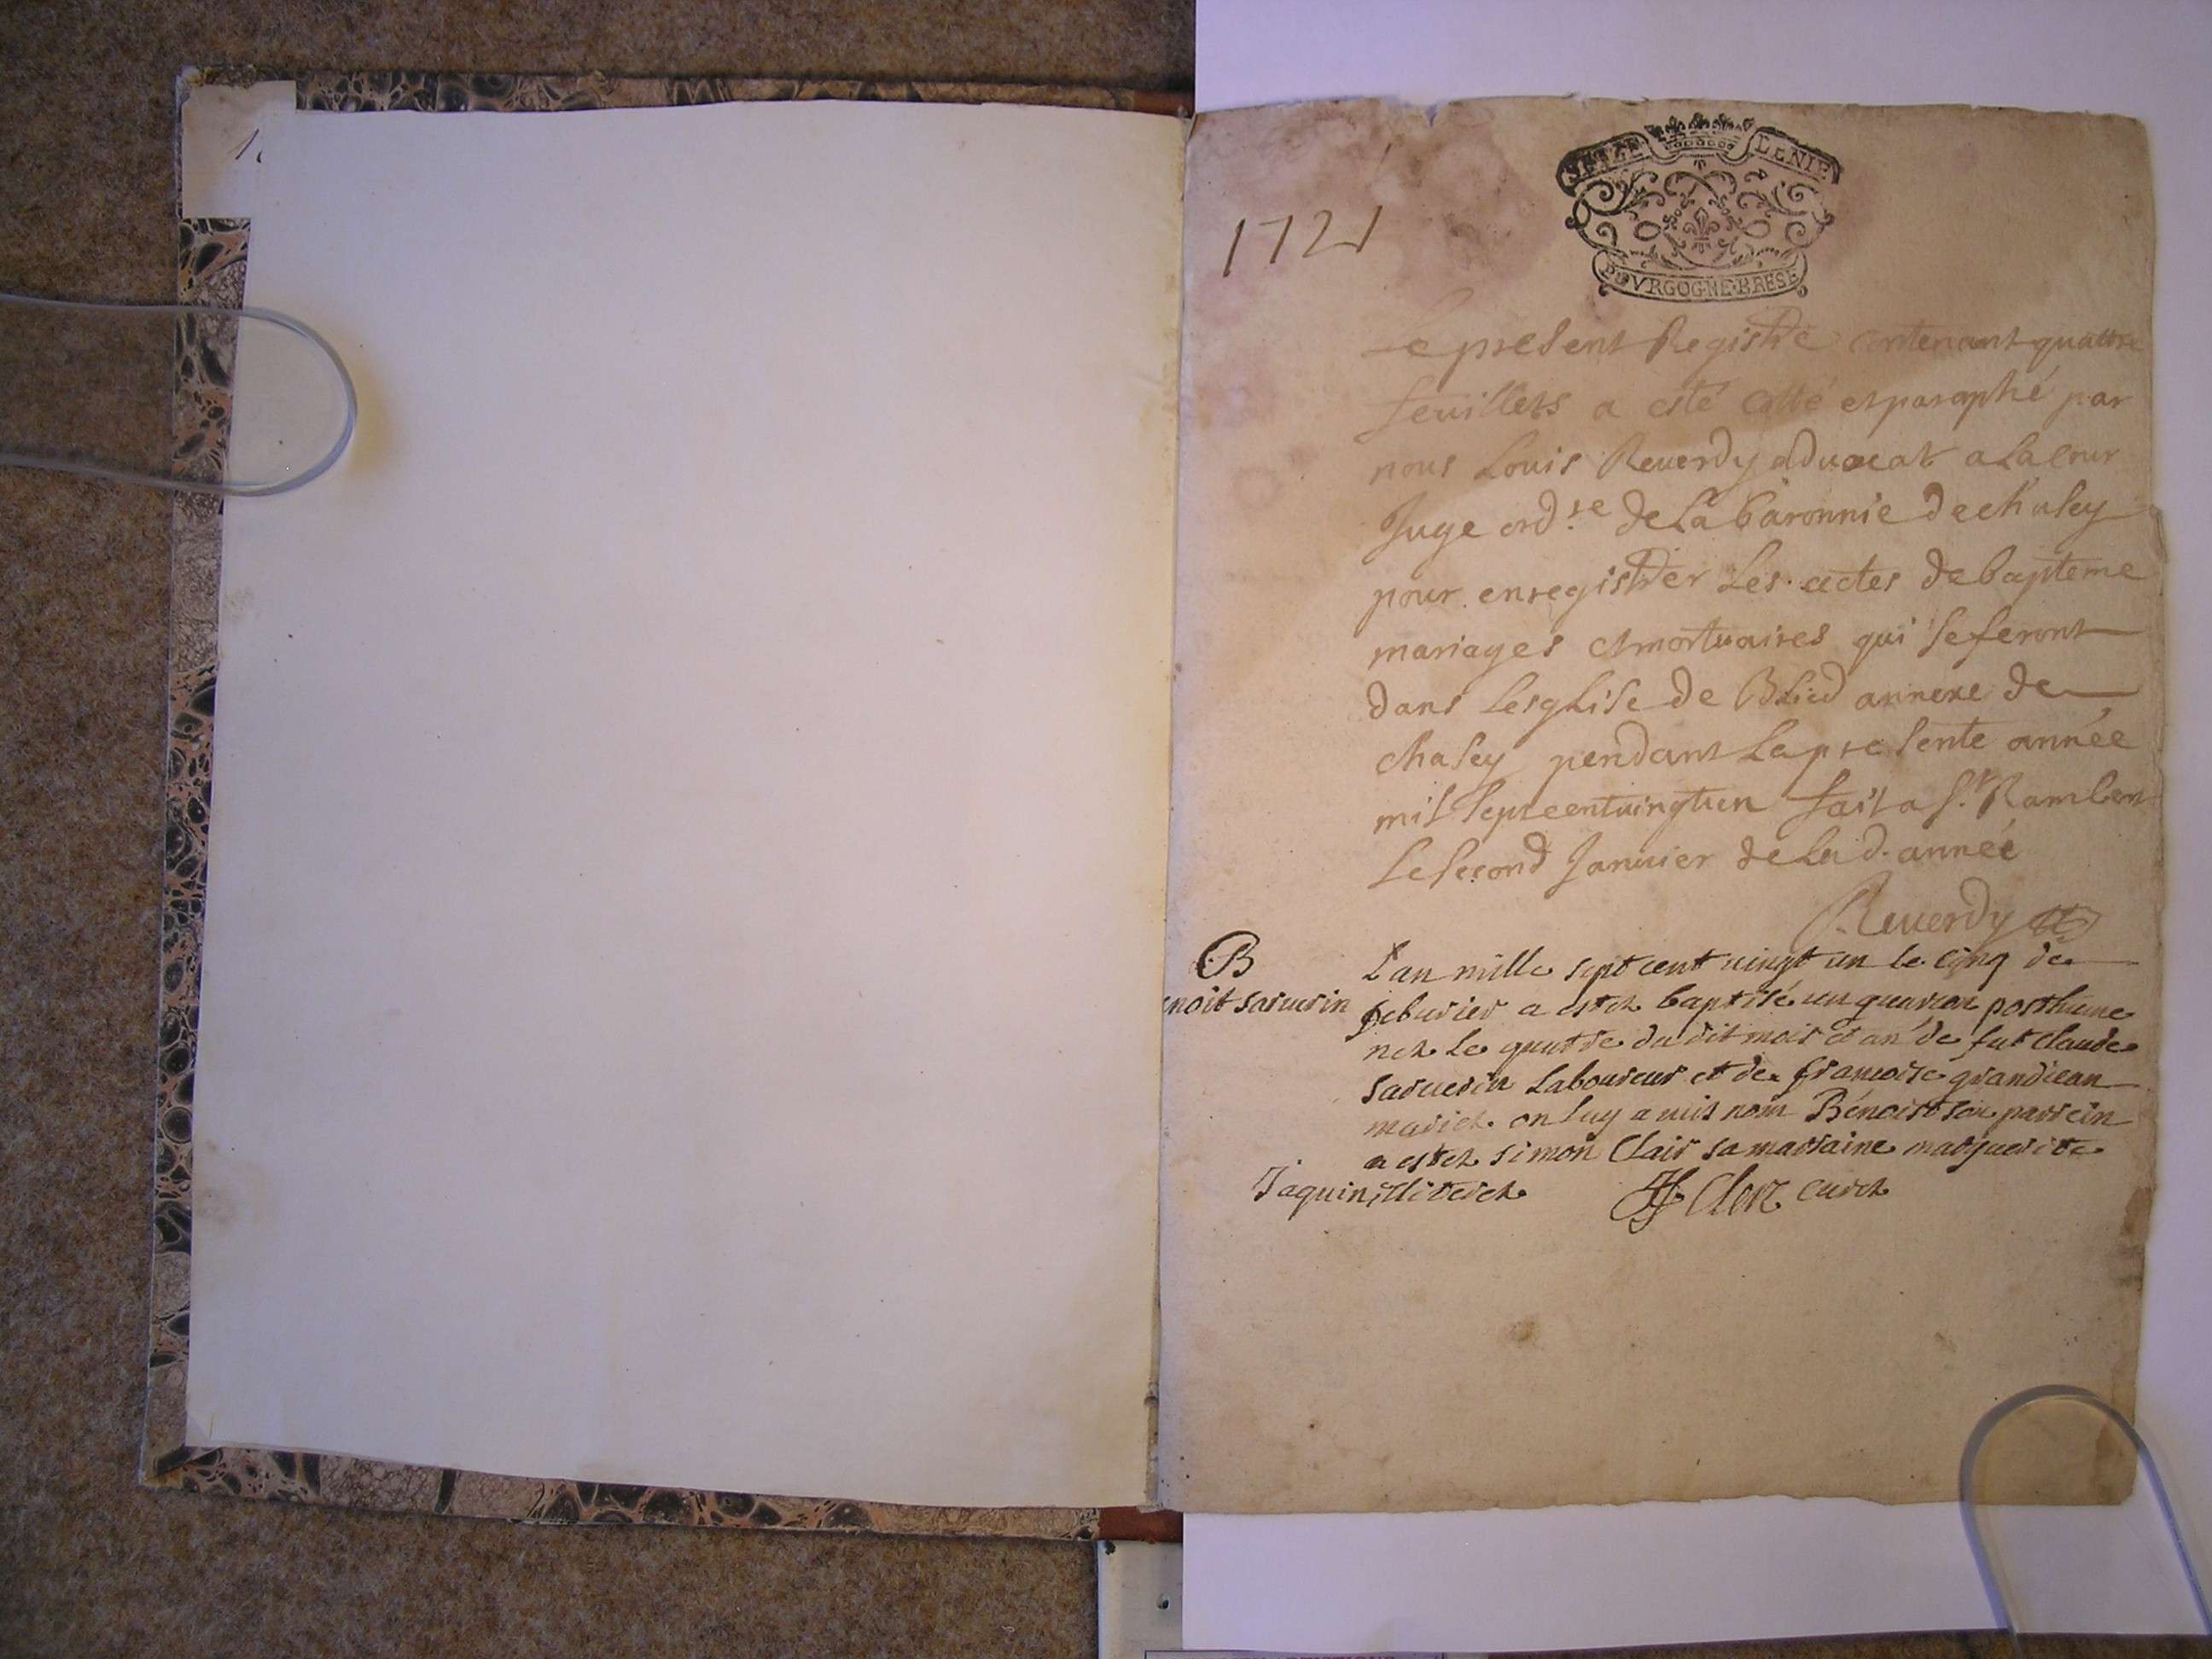 1721
SEIZE DENIE
BOVRGOGNE·BRESE
Le present Registre contenant quattre
feuillets a esté cotté et paraphé par
nous Louis Reuerdy aduocat a la Cour
Juge ord.re de La baronnie de chasey
pour enregistrer Les actes de bapteme
mariages et mortuaires qui se feront
dans Lesglise de Blied annexe de
chasey pendant La presente année
mil sept cent uingt un fait a St. Rambert
Le second Januier de Lad. année
Reuerdy
B
noit saruerin
L'an mille sept cent uingt un le cinq de
feburier a esté baptisé un guarcon posthume
né le quatre du dit mois et an de fut Claude
saruerin Laboureur et de francoise grandiean
mariée on luy a mis nom Bénoist son parrein
a esté simon Clair sa marraine marguerite
Jaquin illiterée Clerc curé